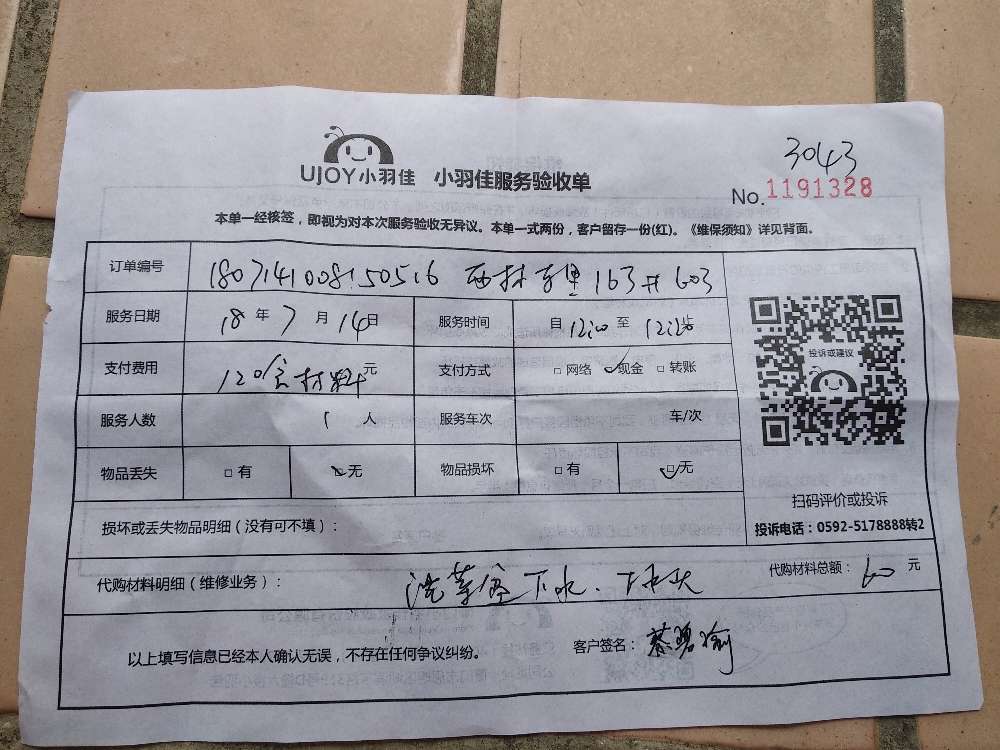 3043
UJOY小羽佳 小羽佳服务验收单
No.1191328
本单一经核签，即视为对本次服务验收无异议。本单一式两份，客户留存一份(红)。《维保须知》详见背面。
订单编号 180714100815 0516 西林东里 163# 603
服务日期 18年7月14日 服务时间 自 12:00 至
支付费用 120含材料元 支付方式 □网络 ✓现金 □转账
服务人数 1人 服务车次 车/次
物品丢失 □有 ☑无 物品损坏 □有 ☑无
投诉或建议
扫码评价或投诉
投诉电话：0592-5178888转2
损坏或丢失物品明细（没有可不填）：
代购材料明细（维修业务）： 洗菜盆下水、下水头 代购材料总额：60元
以上填写信息已经本人确认无误，不存在任何争议纠纷。 客户签名：